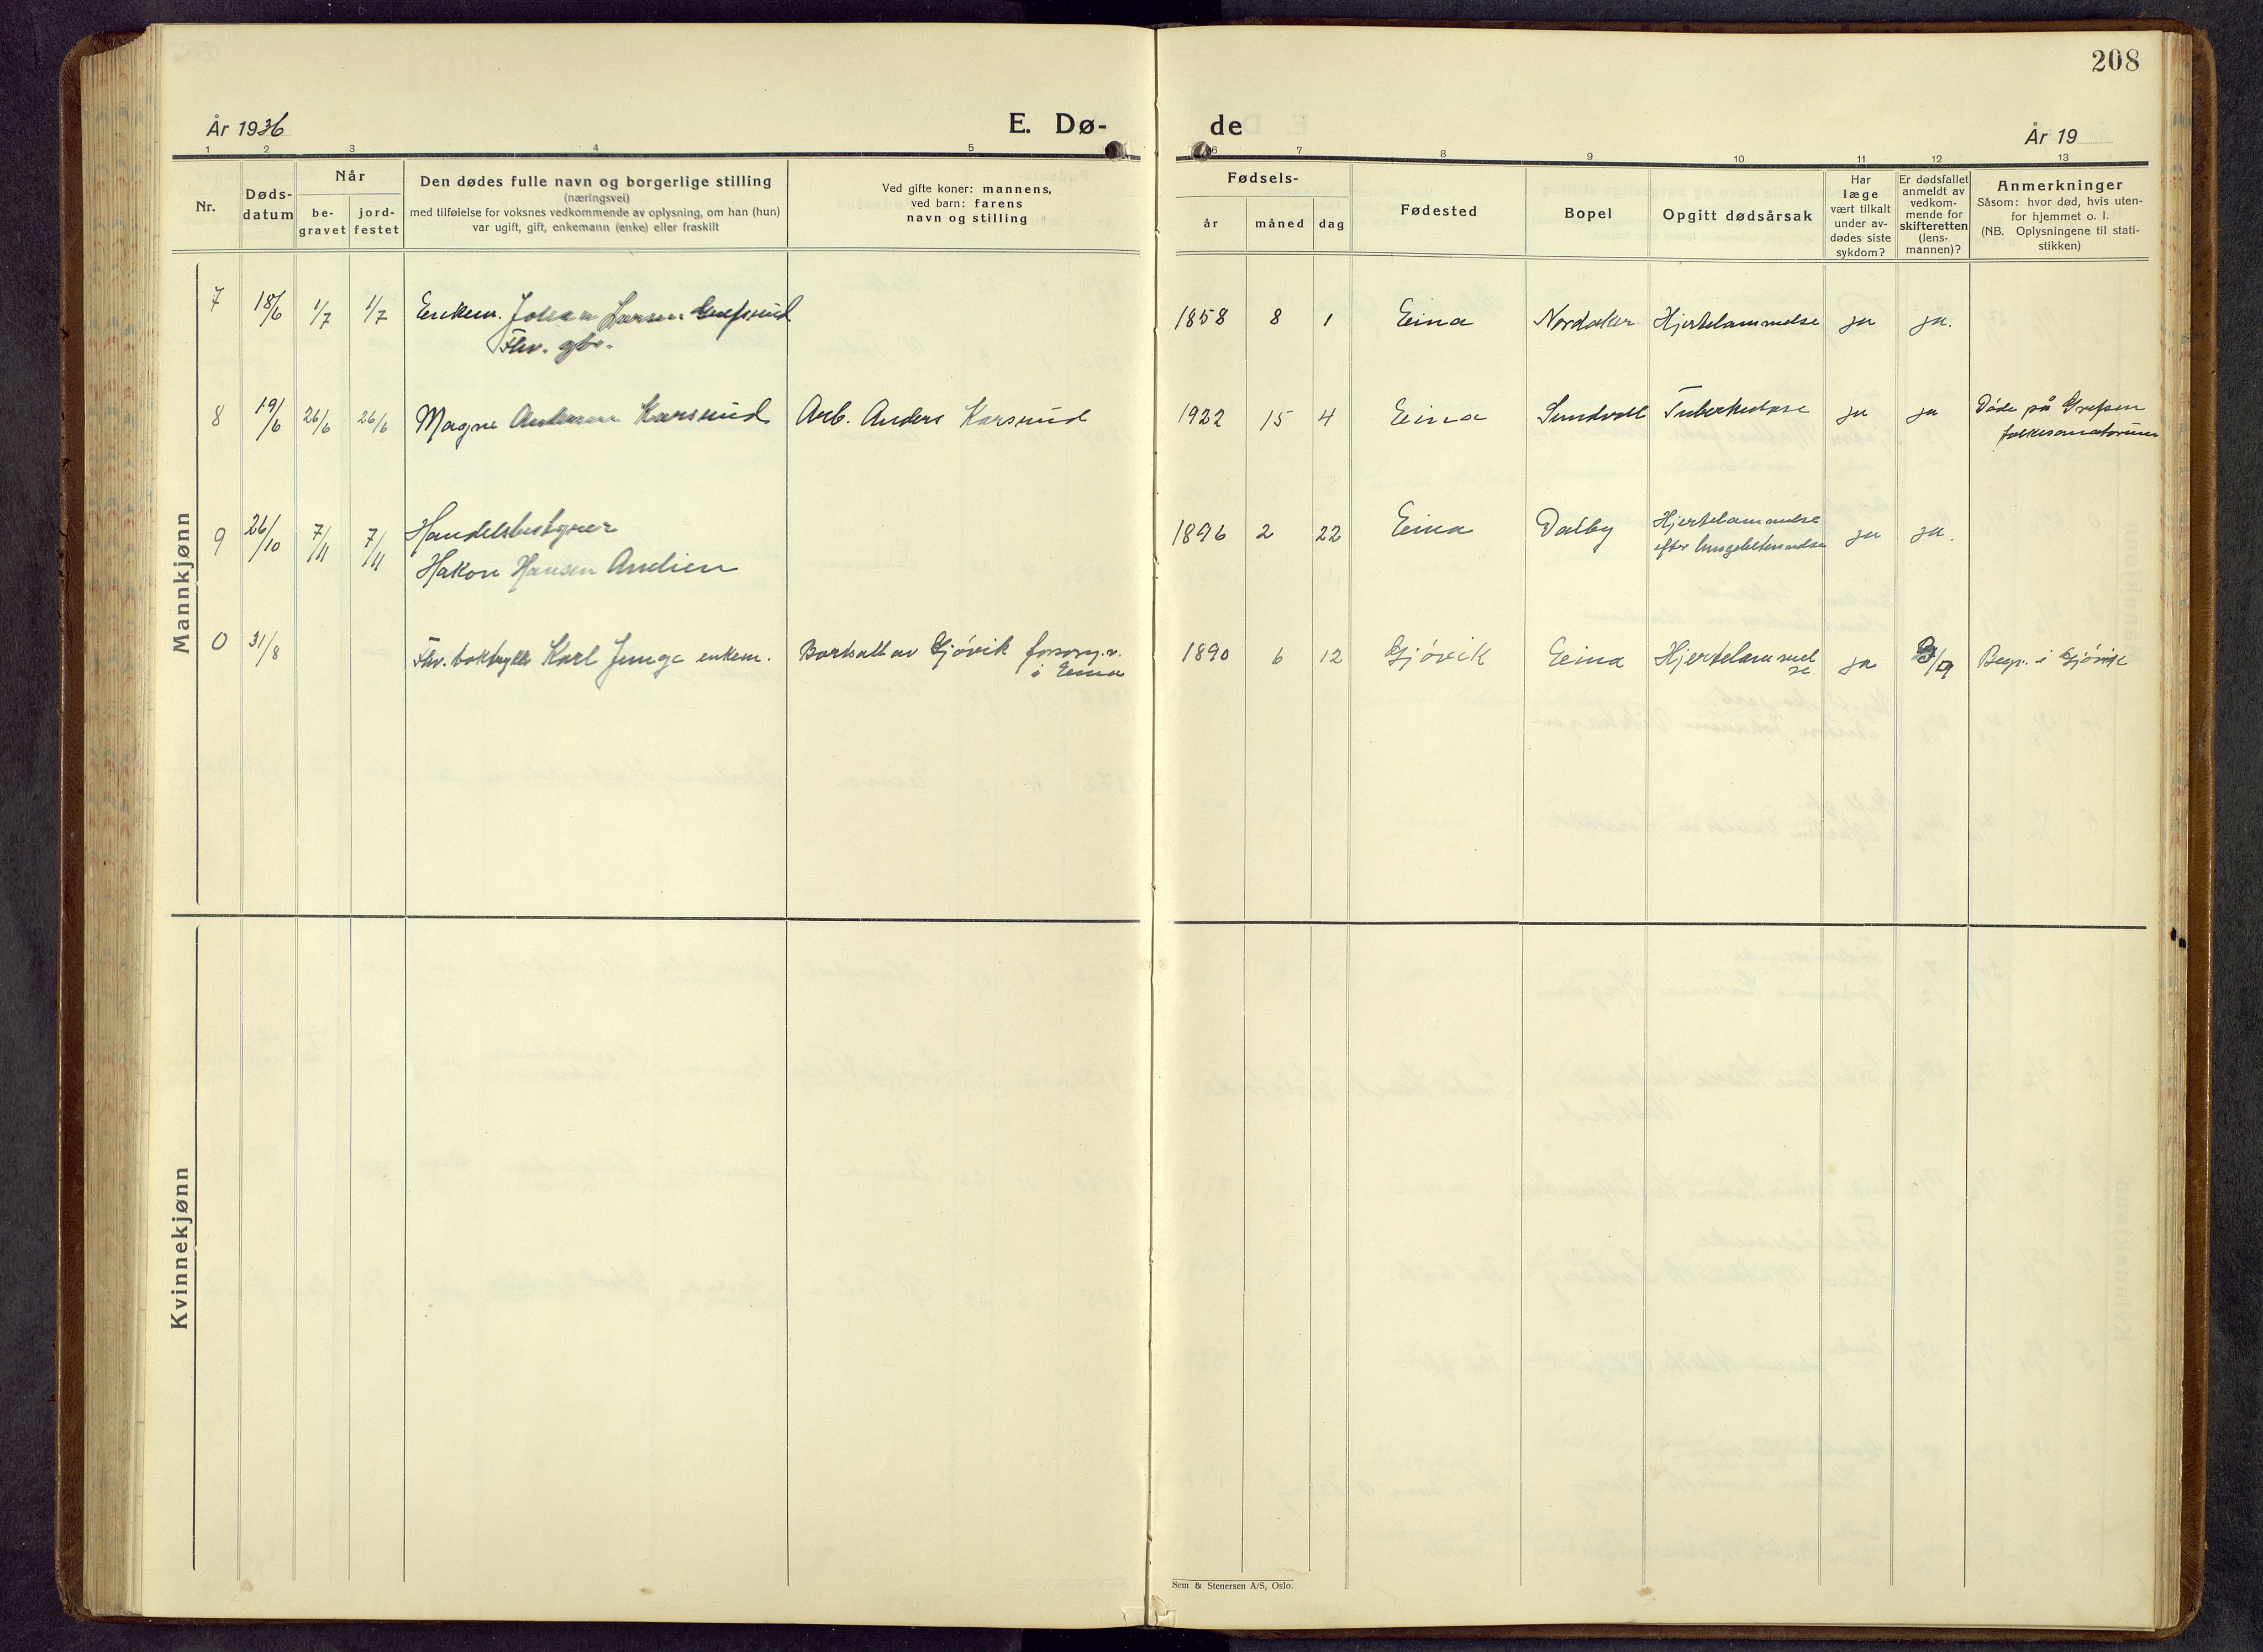 208
År 1936
E. Dø-
de
År 19
1 2 3 4 5 6 7 8 9 10 11 12 13
Nr.
Døds-
datum
Når
be-
gravet
jord-
festet
Den dødes fulle navn og borgerlige stilling
(næringsvei)
med tilføielse for voksnes vedkommende av oplysning, om han (hun)
var ugift, gift, enkemann (enke) eller fraskilt
Ved gifte koner: mannens,
ved barn: farens
navn og stilling
Fødsels-
år
måned
dag
Fødested
Bopel
Opgitt dødsårsak
Har
læge
vært tilkalt
under av-
dødes siste
sykdom?
Er dødsfallet
anmeldt av
vedkom-
mende for
skifteretten
(lens-
mannen)?
Anmerkninger
Såsom: hvor død, hvis uten-
for hjemmet o. l.
(NB. Oplysningene til stati-
stikken)
Mannkjønn
7 18/6 1/7 1/7 Enkem. Johan Larsen 1858 8 1 Eina Nordaker Hjertelammelse ja ja.
Fhv. gbr.
8 19/6 26/6 26/6 Magne Andersen Karsrud Arb. Anders Karsrud 1922 15 4 Eina Sundvoll Tuberkulose ja ja Døde på Grefsen
folkesanatorium
9 26/10 7/11 7/11 Handelsbestyrer 1896 2 22 Eina Dalby Hjertelammelse ja ja.
Hakon Hansen efter lungebetendelse
0 31/8 Fhv. Karl Junge enkem. Bortsatt av Gjövik forsorg.v. 1890 6 12 Gjövik Eina Hjertelammel ja /9 Begr. i Gjövik
i Eina
se
Kvinnekjønn
Sem & Stenersen A/S, Oslo.